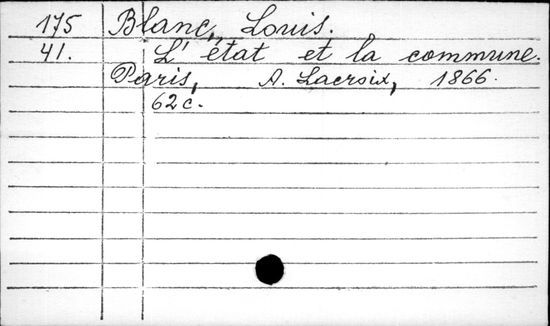 175 Blanc, Louis.
41. L'état et la commune.
Paris, A. Lacroix, 1866.
62 c.